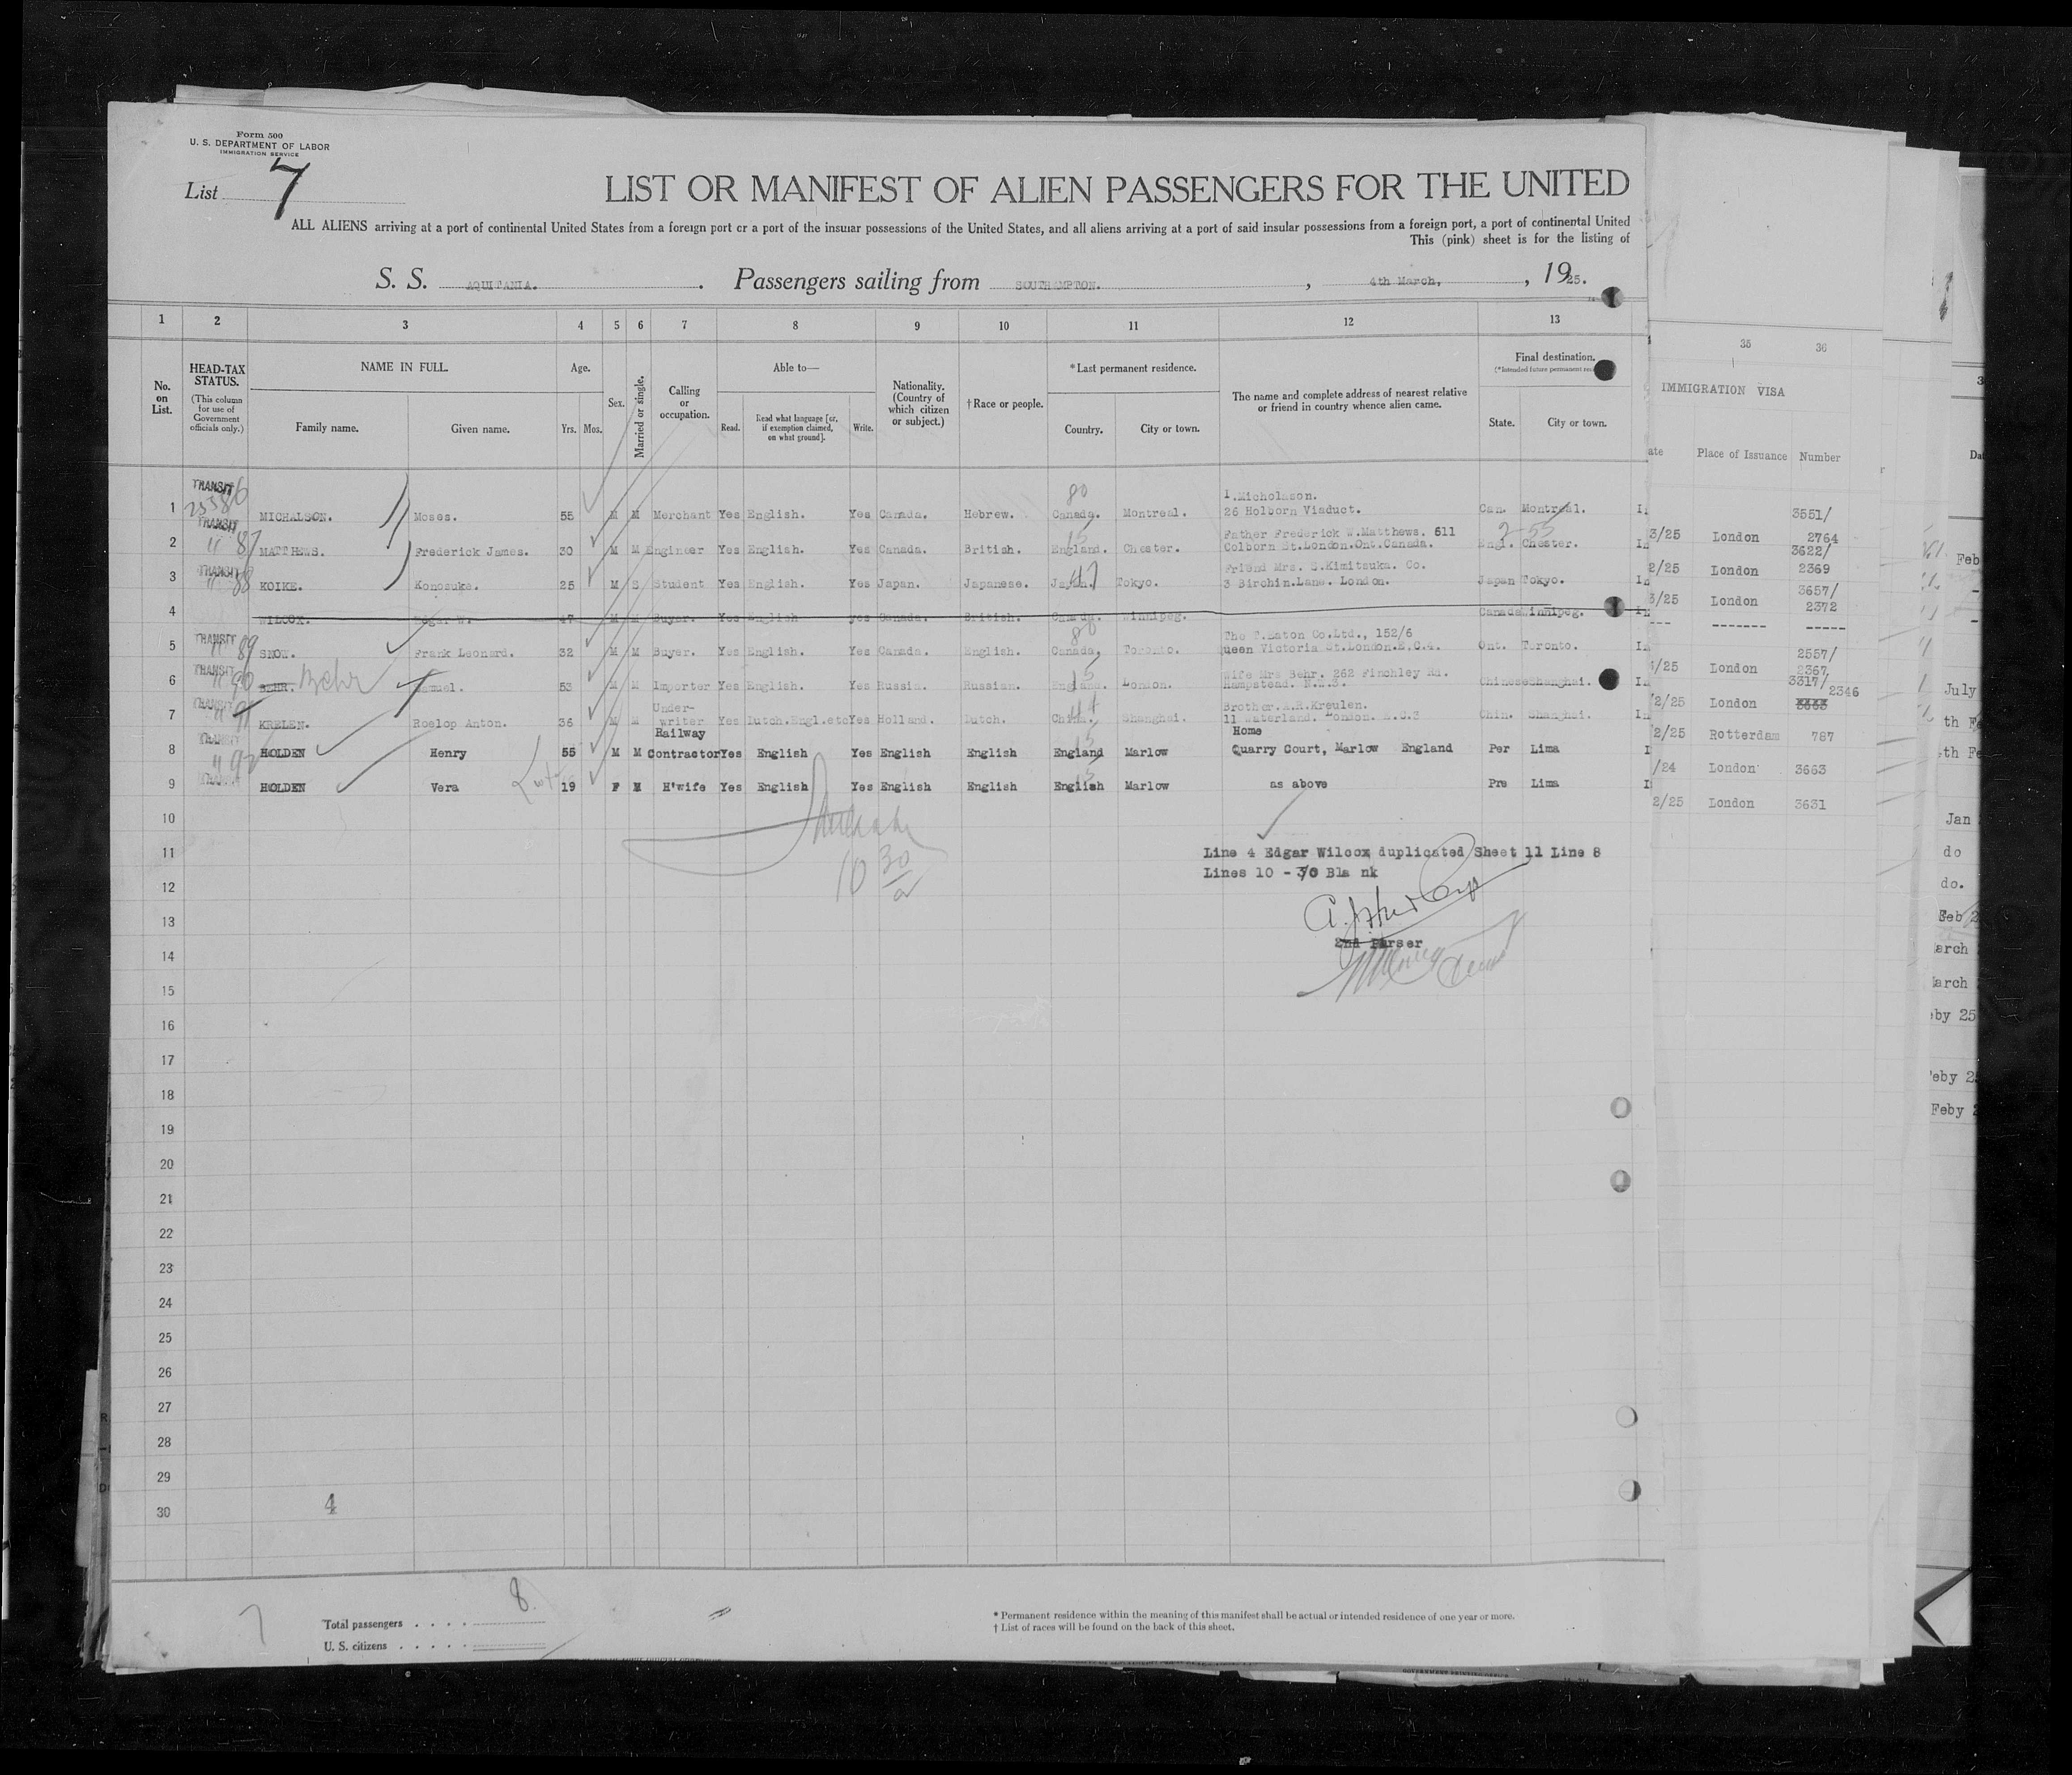 Form 500
U. S. DEPARTMENT OF LABOR
IMMIGRATION SERVICE
List 7
LIST OR MANIFEST OF ALIEN PASSENGERS FOR THE UNITED
ALL ALIENS arriving at a port of continental United States from a foreign port or a port of the insular possessions of the United States, and all aliens arriving at a port of said insular possessions from a foreign port, a port of continental United
This (pink) sheet is for the listing of
S. S. AQUITANIA. Passengers sailing from SOUTHAMPTON. , 4th March, , 1925.
1 2 3 4 5 6 7 8 9 10 11 12 13 35 36
No. on List.
HEAD-TAX STATUS.
(This column for use of Government officials only.)
NAME IN FULL.
Family name. Given name.
Age.
Yrs. Mos.
Sex.
Married or single.
Calling or occupation.
Able to—
Read. Read what language [or, if exemption claimed, on what ground]. Write.
Nationality. (Country of which citizen or subject.)
†Race or people.
*Last permanent residence.
Country. City or town.
The name and complete address of nearest relative or friend in country whence alien came.
Final destination.
State. City or town.
IMMIGRATION VISA
Place of Issuance Number
TRANSIT 1 MICHALSON. Moses. 55 M M Merchant Yes English. Yes Canada. Hebrew. Canada. Montreal. I.Micholason. 26 Holborn Viaduct. Can. Montreal.
TRANSIT 2 " 87 MATTHEWS. Frederick James. 30 M M Engineer Yes English. Yes Canada. British. England. Chester. Father Frederick W.Matthews. 511 Colborn St.London.Ont.Canada. Engl. Chester.
TRANSIT 3 " 88 KOIKE. Konosuke. 25 M S Student Yes English. Yes Japan. Japanese. Japan. Tokyo. Friend Mrs. S.Kimitsuka. Co. 3 Birchin.Lane. London. Japan Tokyo.
4 WILCOX. Edgar W. 47 M M Buyer. Yes English yes Canada. British. Canada. Winnipeg. Canada Winnipeg.
TRANSIT 5 " 89 SNOW. Frank Leonard. 32 M M Buyer. Yes English. Yes Canada. English. Canada, Toronto. The T.Eaton Co.Ltd., 152/6 ueen Victoria St.London.E.C.4. Ont. Toronto.
TRANSIT 6 " 90 BEHR. Behr Samuel. 53 M M Importer Yes English. Yes Russia. Russian. England. London. Wife Mrs Behr. 262 Finchley Rd. Hampstead. N.W.3. Chinese Shanghai.
TRANSIT 7 " 91 KRELEN. Roelop Anton. 36 M M Under-writer Yes Dutch.Engl.etc Yes Holland. Dutch. China. Shanghai. Brother.A.R.Kreulen. 11 Waterland. London. E.C.3 Chin. Shanghai.
TRANSIT 8 " 92 HOLDEN Henry 55 M M Railway Contractor Yes English Yes English English England Marlow Home Quarry Court, Marlow England Per Lima
TRANSIT 9 HOLDEN Vera 19 F M H'wife Yes English Yes English English English Marlow as above Pre Lima
3551/
3/25 London 2764
3622/
2/25 London 2369
3657/
3/25 London 2372
--- ------- -----
2557/
1/25 London 2367
3317/
2/25 London 2346
2/25 Rotterdam 787
/24 London 3663
2/25 London 3631
10 30
Line 4 Edgar Wilcox duplicated Sheet 11 Line 8
Lines 10 - 30 Bla nk
2nd Purser
10
11
12
13
14
15
16
17
18
19
20
21
22
23
24
25
26
27
28
29
30
4
Total passengers . . . . 8
U. S. citizens . . . . .
7
* Permanent residence within the meaning of this manifest shall be actual or intended residence of one year or more.
† List of races will be found on the back of this sheet.
Feb
July
th Fe
th Fe
Jan
do
do.
Feb 2
arch
arch
by 25
Feby 2